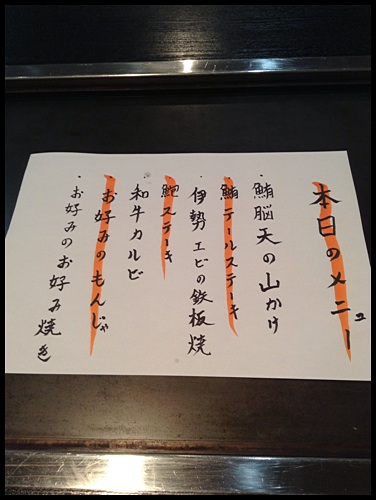 本日のメニュー
・鮪脳天の山かけ
・鮪テールステーキ
・伊勢エビの鉄板焼
・鮑ステーキ
・和牛カルビ
・お好みのもんじゃ
・お好みのお好み焼き